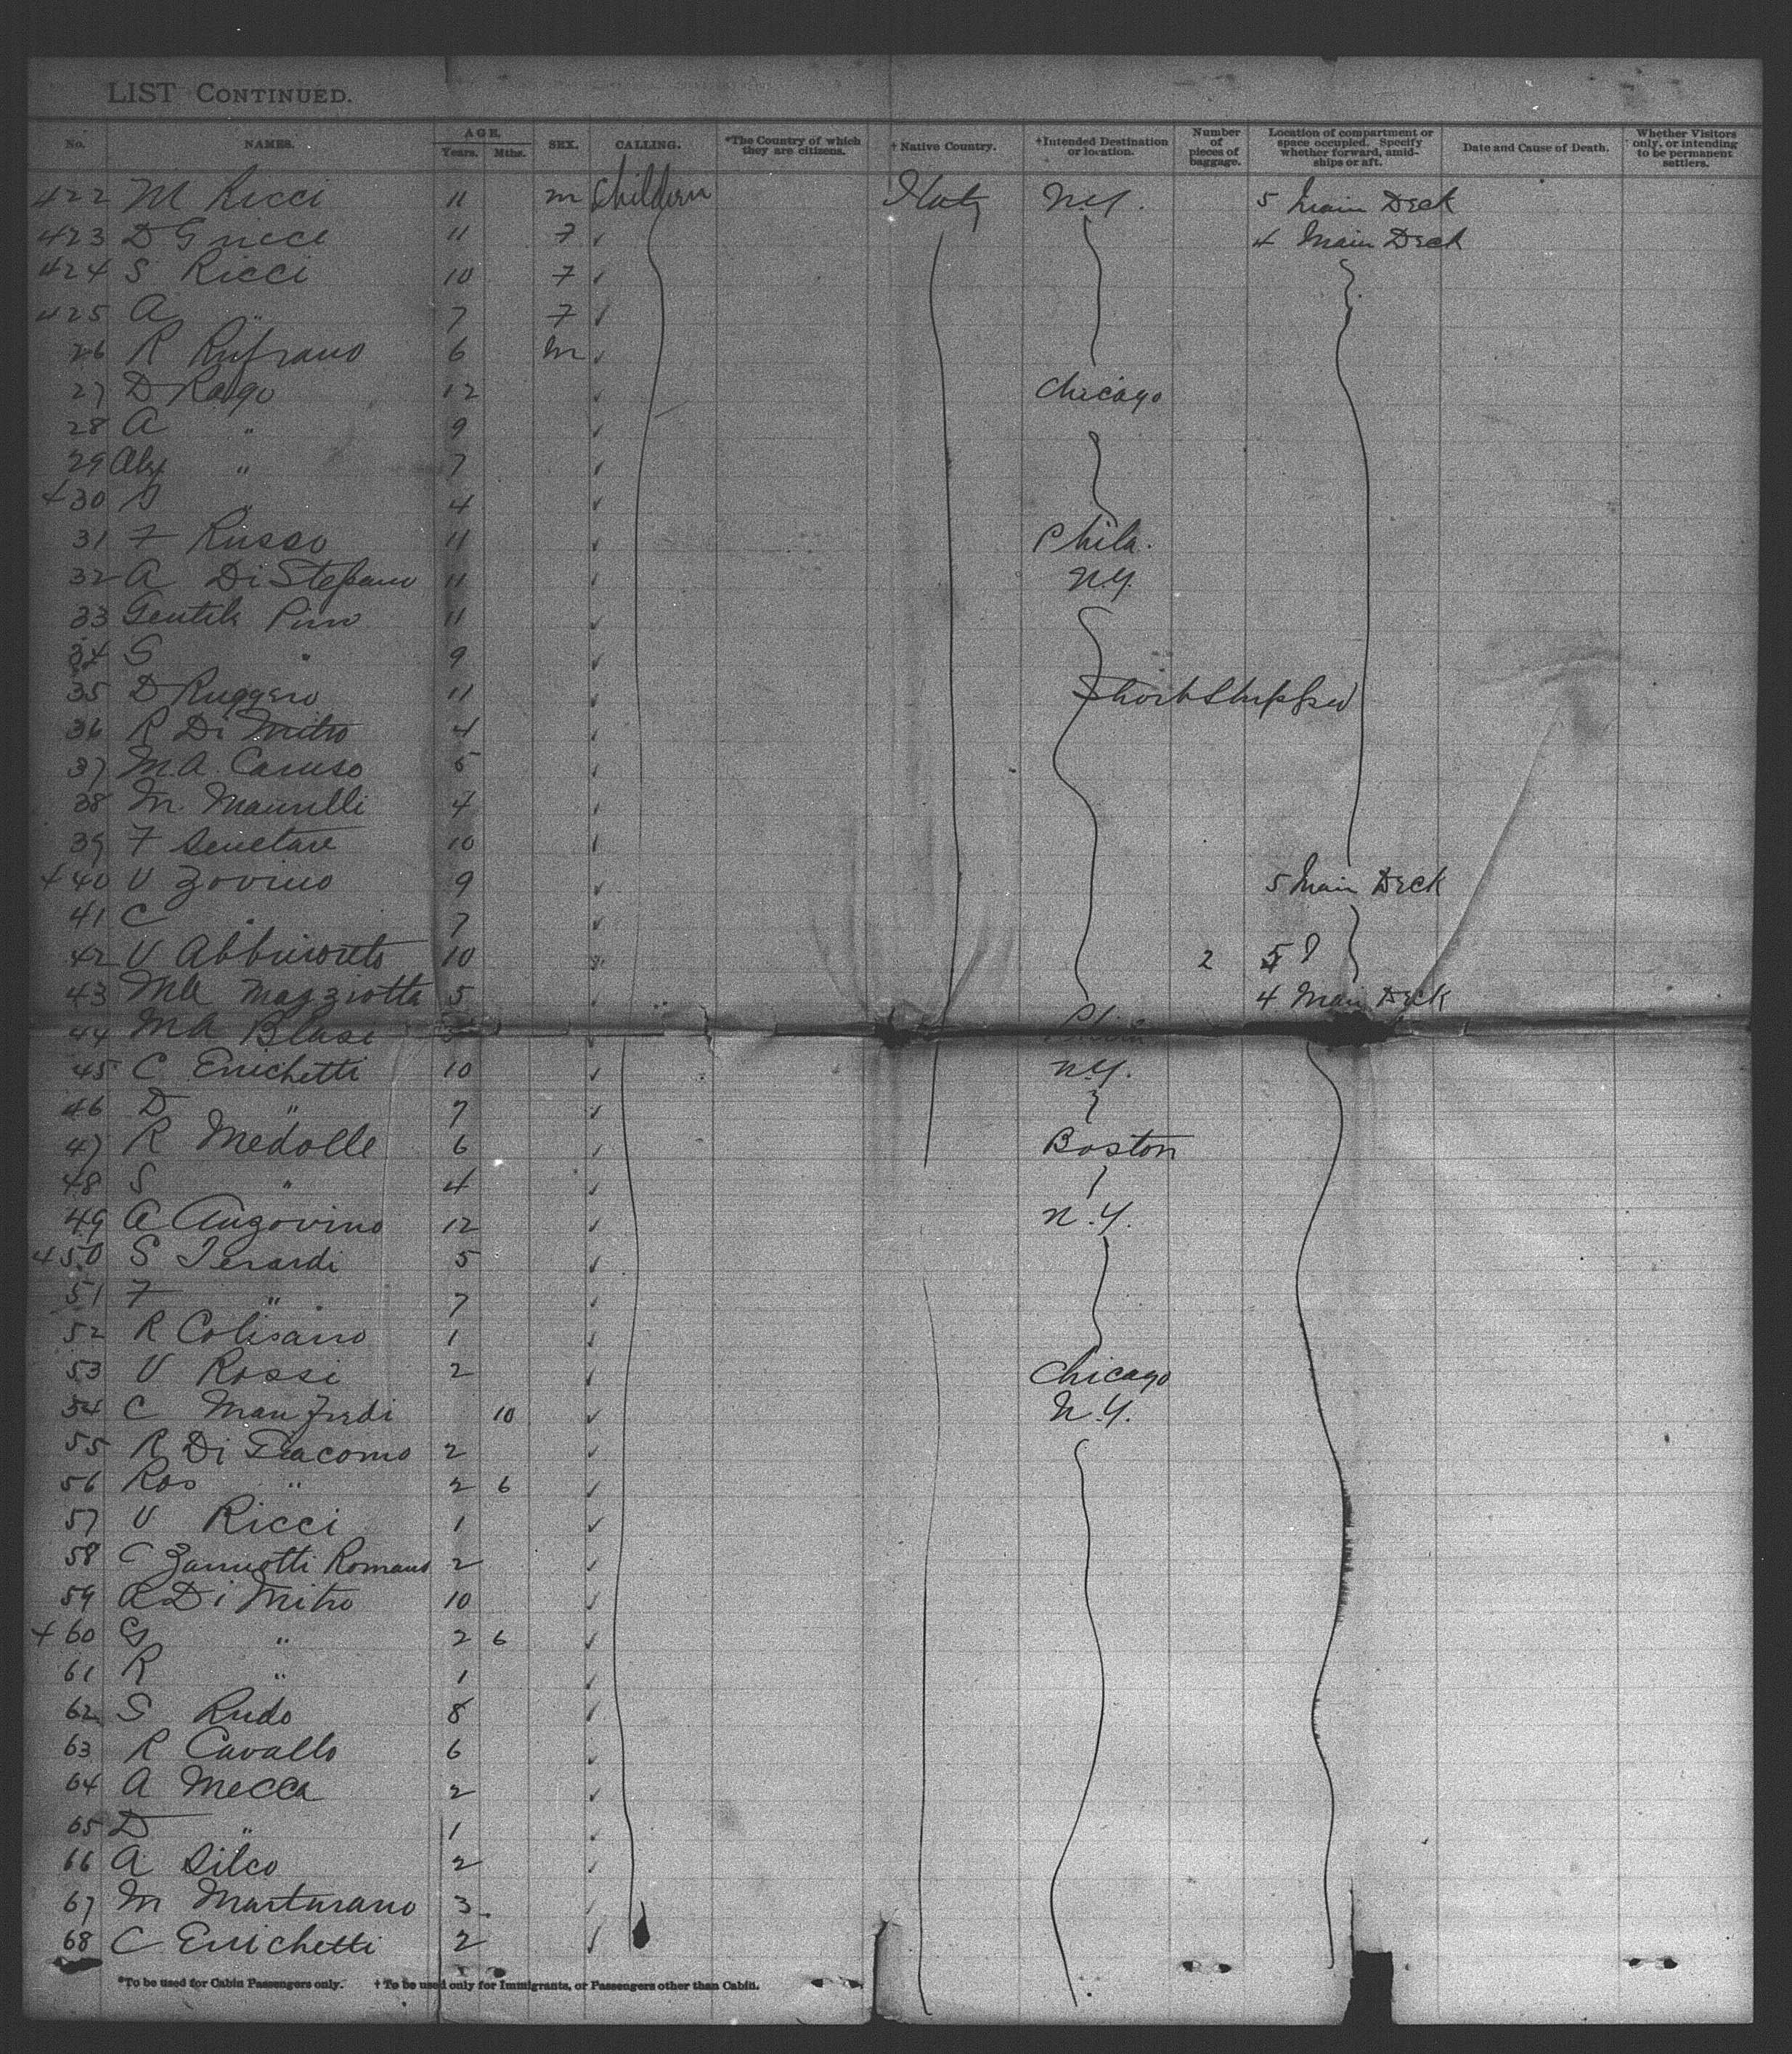 LIST CONTINUED.
No. NAMES. AGE. Years. Mths. SEX. CALLING. *The Country of which they are citizens. †Native Country. †Intended Destination or location. Number of pieces of baggage. Location of compartment or space occupied. Specify whether forward, amidships or aft. Date and Cause of Death. Whether Visitors only, or intending to be permanent settlers.
422 M Ricci 11 m Children Italy N.Y. 5 Main Deck
423 D 11 F ✓ 4 Main Deck
424 S Ricci 10 F ✓
425 A " 7 F ✓
26 R Rufrano 6 m ✓
27 D Rago 12 ✓ Chicago
28 A " 9 ✓
29 Alex " 7 ✓
430 " 4 ✓
31 F Russo 11 ✓ Phila.
32 A Di Stefano 11 ✓ N.Y.
33 Gentile 11 ✓
34 S " 9 ✓
35 D Ruggero 11 ✓ Short Shipped
36 R Di Mitro 4 ✓
37 M.A. Caruso 5 ✓
38 M. 4 ✓
39 F 10 ✓
440 V Zovino 9 ✓ 5 Main Deck
41 C " 7 ✓
42 V 10 2 5
43 Ma Mazziotta 5 ✓ 4 Main Deck
44 MA Blasi ✓
45 C Errichetti 10 ✓ N.Y.
46 D " 7 ✓
47 R Medolle 6 ✓ Boston
48 S " 4 ✓
49 A Angovino 12 ✓ N.Y.
450 S Ierardi 5 ✓
51 F " 7 ✓
52 R Colisano 1 ✓
53 V Rossi 2 ✓ Chicago
54 C Manfredi 10 ✓ N.Y.
55 R Di Giacomo 2 ✓
56 Ros " 2 6 ✓
57 V Ricci 1 ✓
58 C Zannotti Romano 2 ✓
59 R Di Mitro 10 ✓
460 G " 2 6 ✓
61 R " 1 ✓
62 S Rudo 8 ✓
63 R Cavallo 6 ✓
64 A Mecca 2 ✓
65 D " 1 ✓
66 A Silco 2 ✓
67 M Marturano 3 ✓
68 C Errichetti 2 ✓
*To be used for Cabin Passengers only. †To be used only for Immigrants, or Passengers other than Cabin.